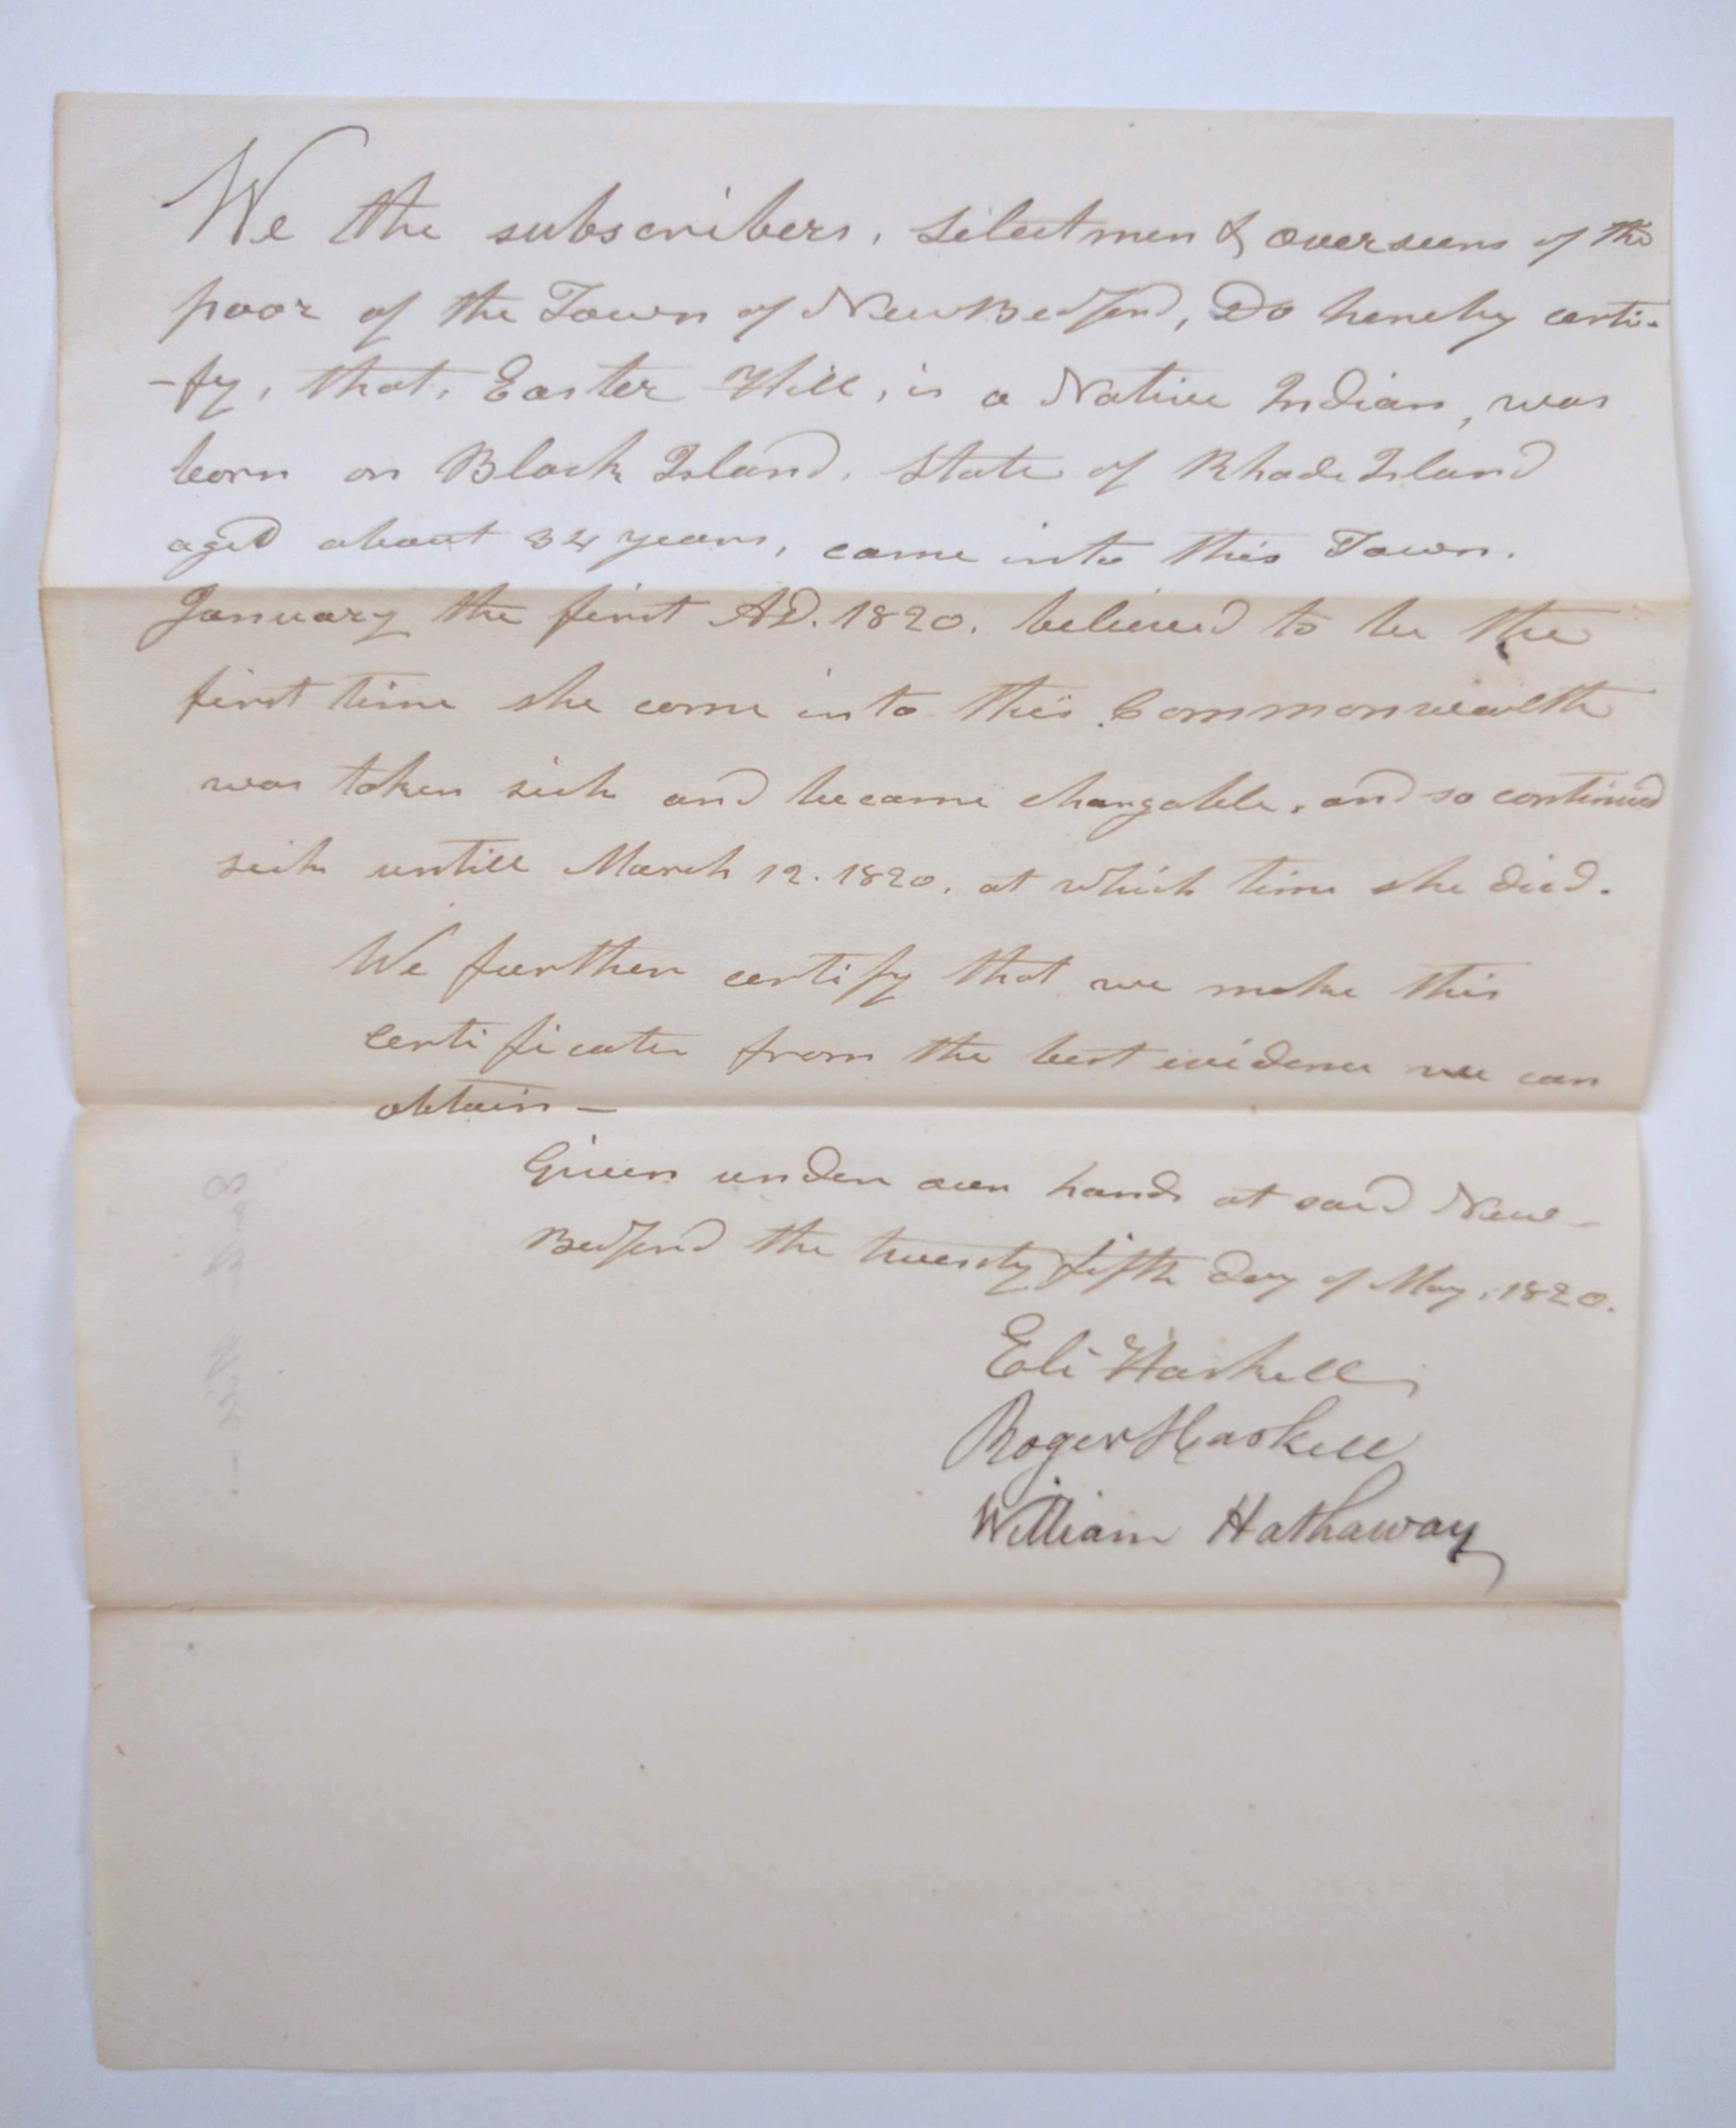 We the subscribers, Selectmen & overseers of the
poor of the Town of New Bedford, Do hereby certi-
-fy, that, Easter Hill, is a Native Indian, was
born on Block Island, State of Rhode Island
aged about 34 years, came into this Town.
January the first AD. 1820. believed to be the
first time she come into this Commonwealth
was taken sick and became changable, and so continued
sick untill March 12. 1820. at which time she died.
We further certify that we make this
certificate from the best evidence we can
obtain —
Given under our hands at said New-
Bedford the twenty fifth day of May, 1820.
Eli Haskell
Roger Haskell
William Hathaway